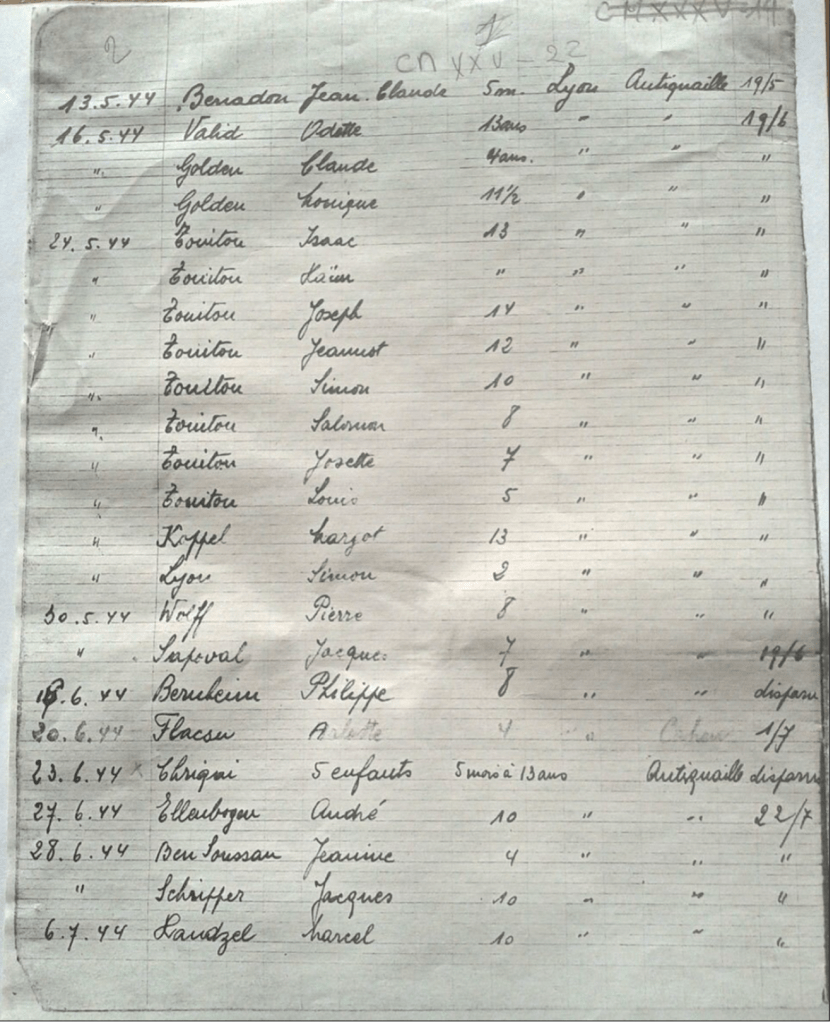 2 1 CM XXXV-14
CM XXV - 22
13.5.44 Benadon Jean.Claude 5m. Lyon Antiquaille 19/5
16.5.44 Valid Odette 13ans " " 19/6
" Golden Claude 4ans. " " "
" Golden Monique 11 1/2 " " "
24.5.44 Touitou Isaac 13 " " "
" Touitou Haïm " " " "
" Touitou Joseph 14 " " "
" Touitou Jeannot 12 " " "
" Touitou Simon 10 " " "
" Touitou Salomon 8 " " "
" Touitou Josette 7 " " "
" Touitou Louis 5 " " "
" Koppel Margot 13 " " "
" Lyon Simon 2 " " "
30.5.44 Wolff Pierre 8 " " "
" Sapoval Jacques 7 " " 19/6
.6.44 Bernheim Philippe 8 " " disparu
20.6.44 Flacsu 4 " 1/7
23.6.44 x Chriqui 5 enfants 5 mois à 13 ans Antiquaille disparu
27.6.44 Ellenbogen André 10 " " 22/7
28.6.44 Ben Soussan Jeanine 4 " " "
" Schriffer Jacques 10 " " "
6.7.44 Handzel Marcel 10 " " "